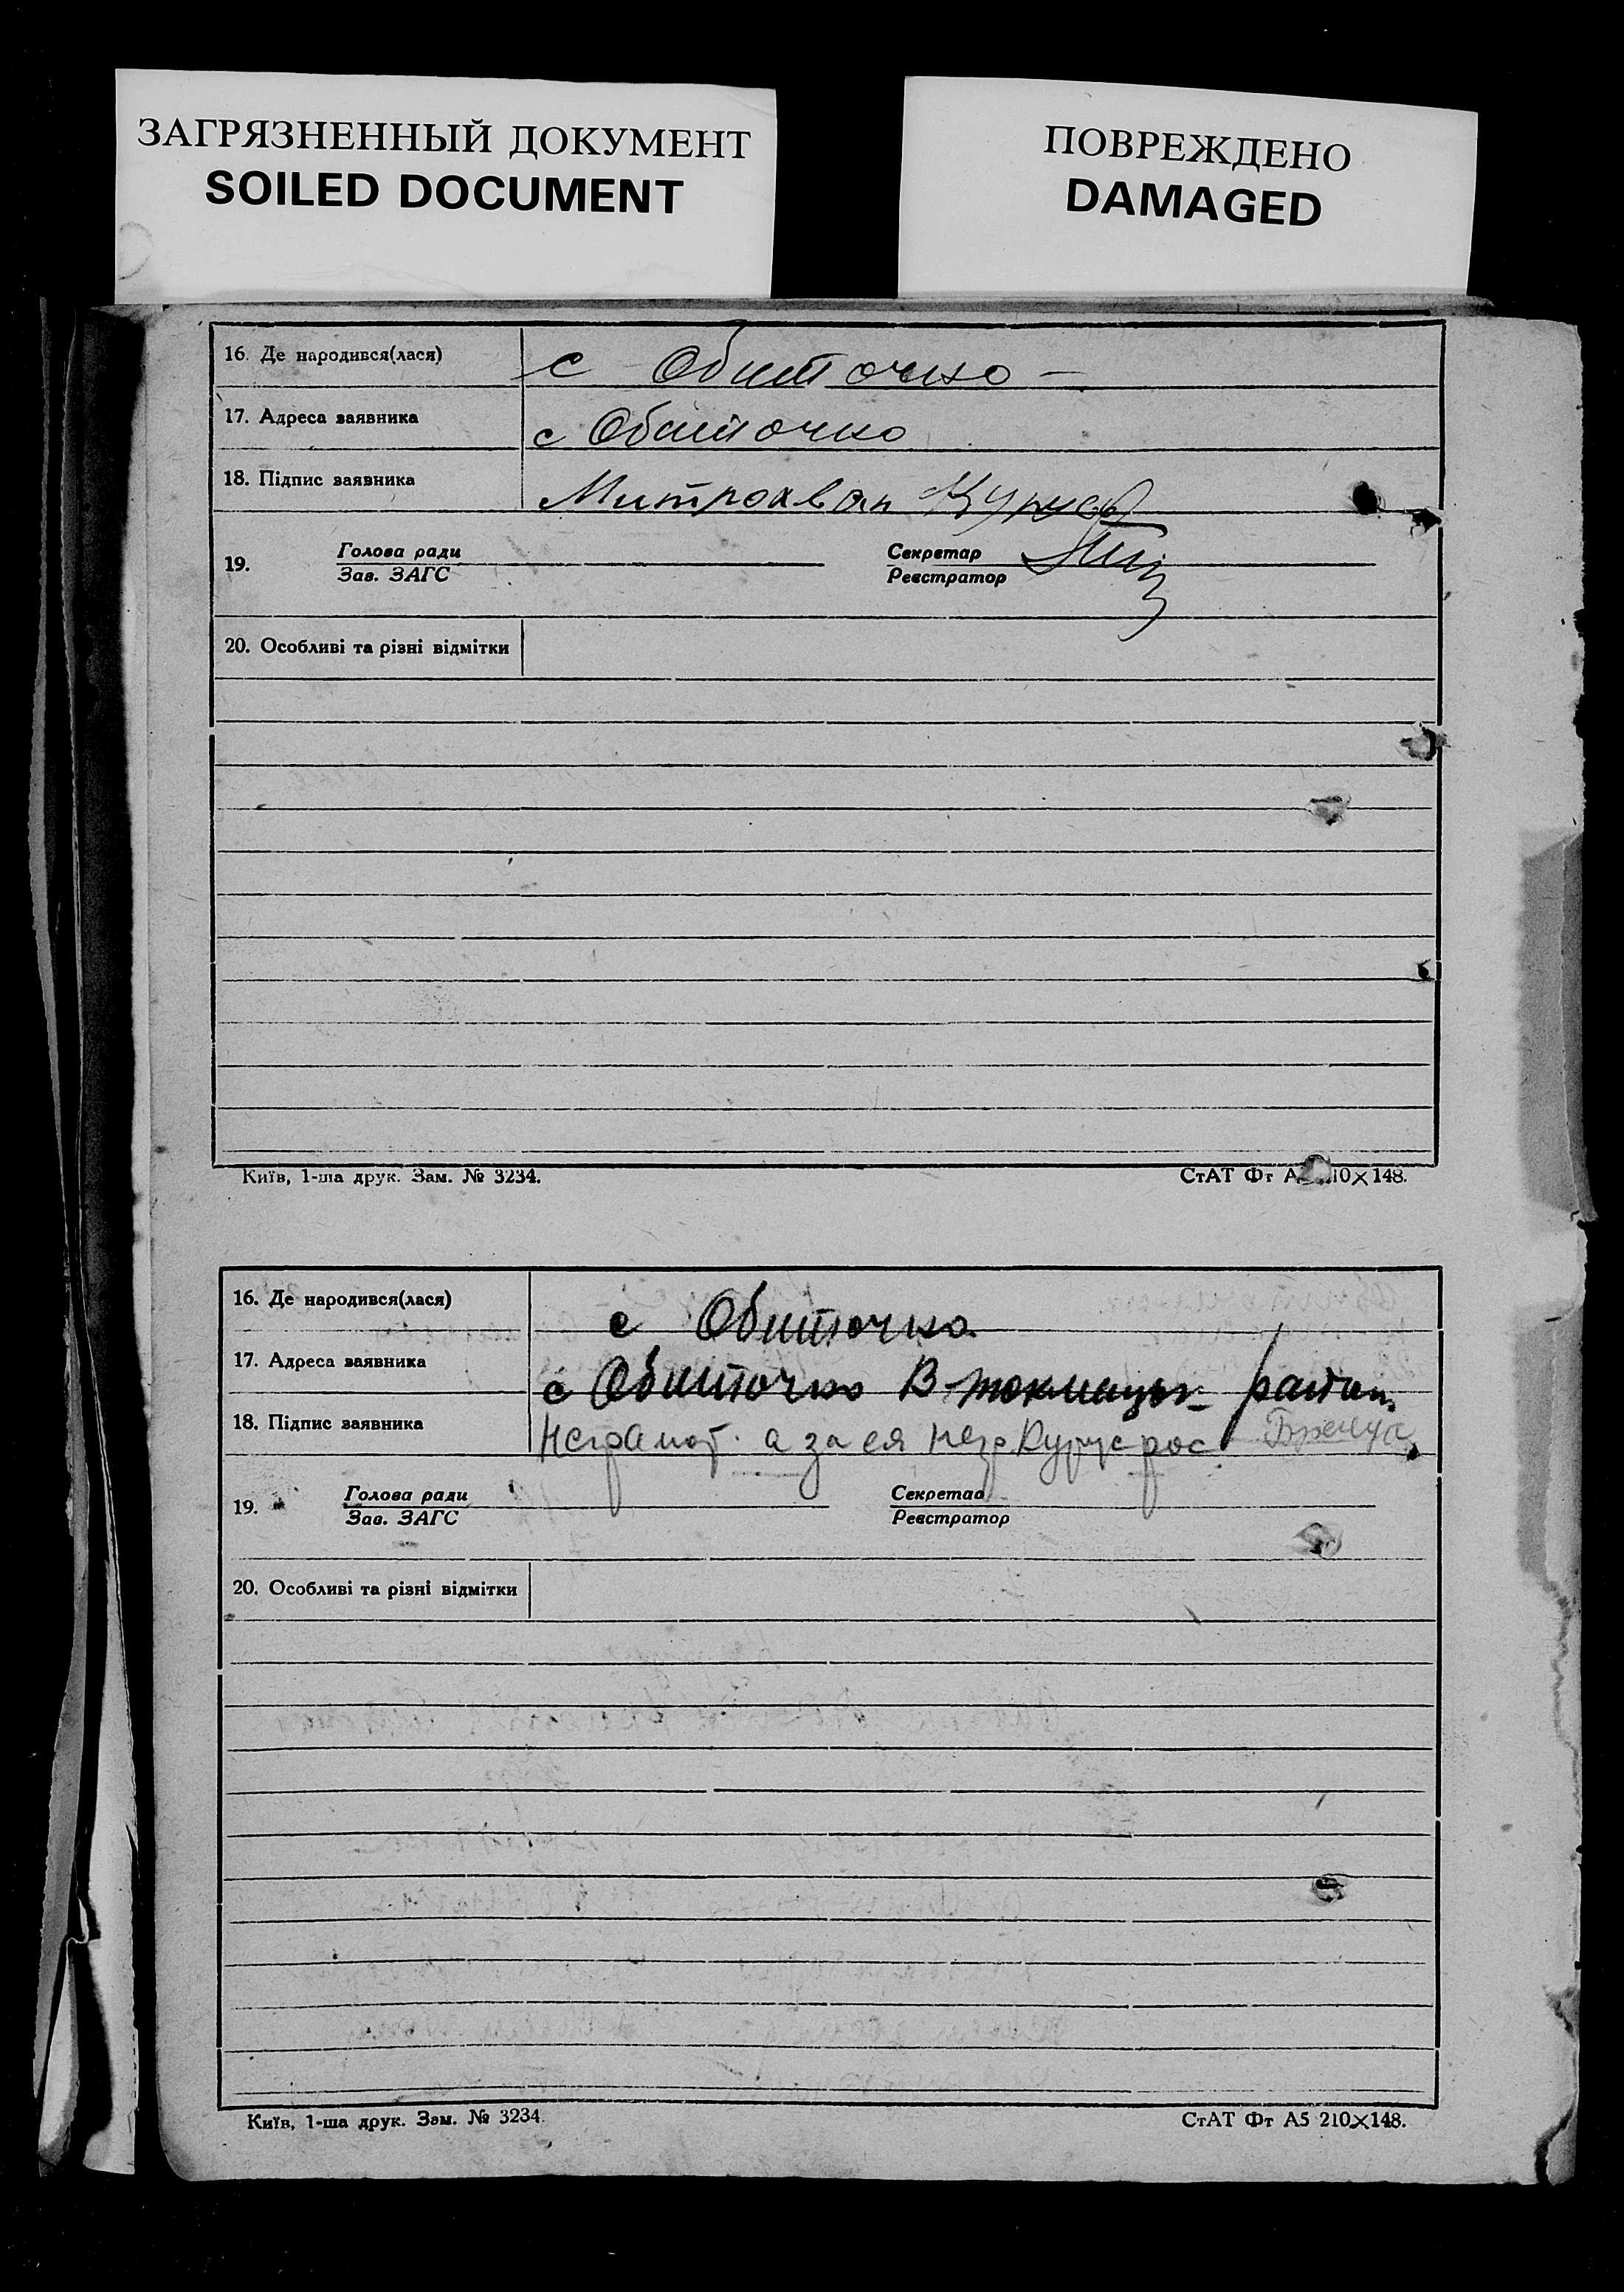 ЗАГРЯЗНЕННЫЙ ДОКУМЕНТ
SOILED DOCUMENT
ПОВРЕЖДЕНО
DAMAGED
16. Де народився(лася) с Обиточно
17. Адреса заявника с Обиточно
18. Підпис заявника Митрохван
19. Голова ради
Зав. ЗАГС
Секретар
Реєстратор
20. Особливі та різні відмітки
Київ, 1-ша друк. Зам. № 3234.
СтАТ Фт 148.
16. Де народився(лася) с Обиточно
17. Адреса заявника с Обиточно В-токмацьк район
18. Підпис заявника Неграмот. а за ея рос
19. Голова ради
Зав. ЗАГС
Секретар
Реєстратор
20. Особливі та різні відмітки
Київ, 1-ша друк. Зам. № 3234.
СтАТ Фт А5 210×148.